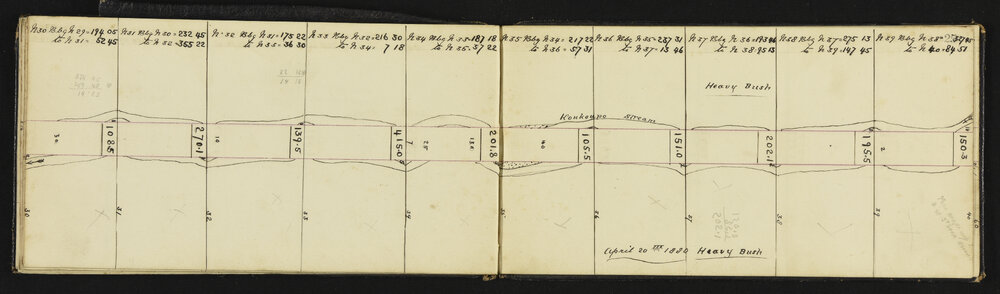 Pt 30 Bkbg Pt 29=194 05
to Pt 31= 52 45
Pt 31 Bkbg Pt 30=232 45
to Pt 32=355 22
Pt 32 Bkbg Pt 31=175 22
to Pt 33= 36 30
Pt 33 Bkbg Pt 32=216 30
to Pt 34= 7 18
Pt 34 Bkbg Pt 33=187 18
to Pt 35= 37 22
Pt 35 Bkbg Pt 34=217 22
to Pt 36= 57 31
Pt 36 Bkbg Pt 35=237 31
to Pt 37= 13 46
Pt 37 Bkbg Pt 36=193 46
to Pt 38 95 13
Pt 38 Bkbg Pt 37=275 13
to Pt 39=147 45
Pt 39 Bkbg Pt 38=
to Pt 40=84 51
Heavy Bush
Stream
30
108.5
270.1
10
139.5
415.0
7
25
201.8
40
105.5
151.0
202.1
195.5
2
150.3
30
31
32
33
34
35
36
37
38
39
40
60
202.1
April 20th 1880
Heavy Bush